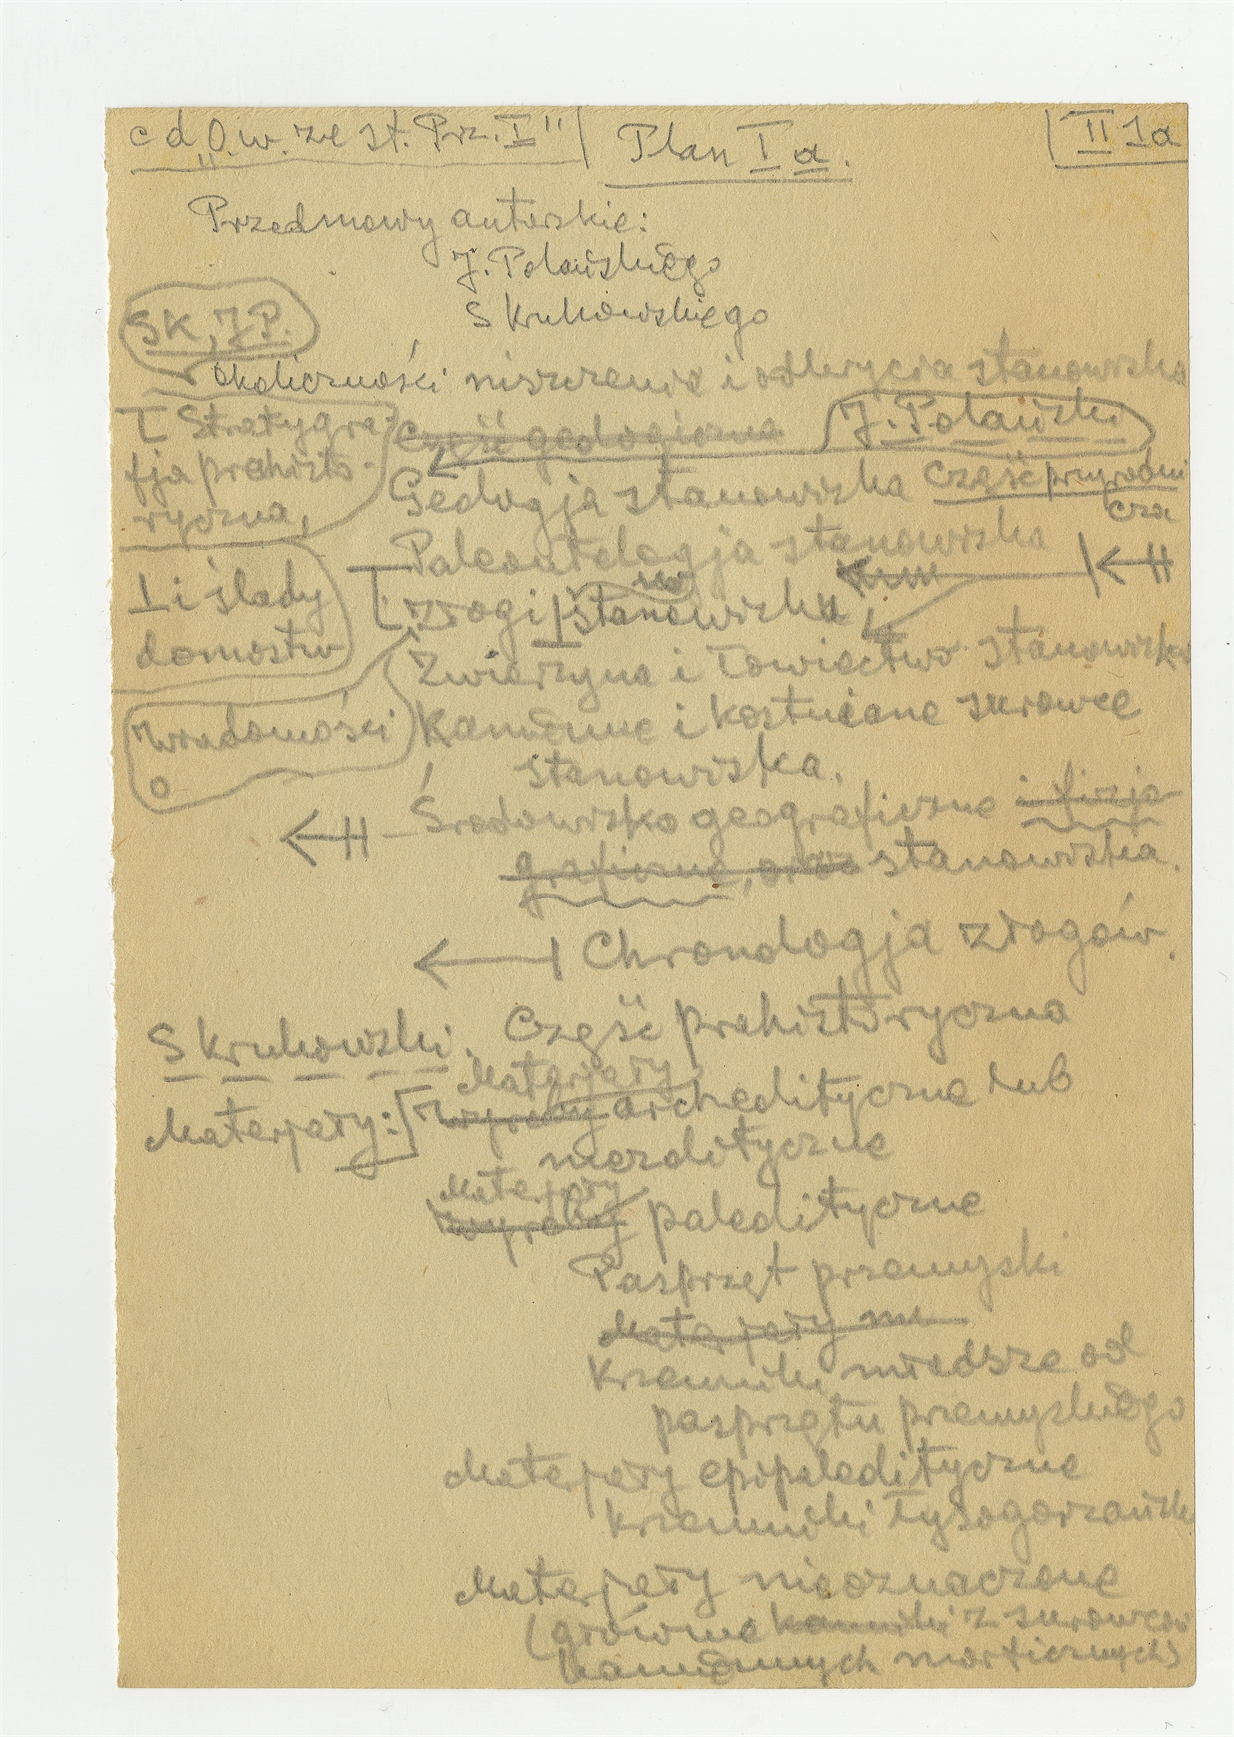 c d „O. w. ze st. Prz. I" Plan I a. II 1a
Przedmowy autorskie:
J. Polańskiego
S Krukowskiego
SK, JP.
okoliczności niszczenia i odkrycia stanowiska
I Stratygra-
fja prehisto-
ryczna,
Część geologiczna
J. Polański
Geologja stanowiska Część przyrodni
cza
Paleontologja stanowiska
I i ślady
domostw
złogi stanowiska
Zwierzyna i łowiectwo stanowiska
wiadomości
o
Kamienne i kostniane surowce
stanowiska.
Środowisko geograficzne i fizjo
graficzne, oraz stanowiska.
Chronologja złogów.
S Krukowski. Część prehistoryczna
Materjały
Materjały: Wyroby archeolityczne lub
mezolityczne
Materjały
Wyroby paleolityczne
Pasprzęt przemyski
Materjały
Krzemiki młodsze od
pasprzętu przemyskiego
Materjały epipaleolityczne
krzemiki łysogorzańsk
Materjały nieoznaczone
(głównie z surowców
kamiennych